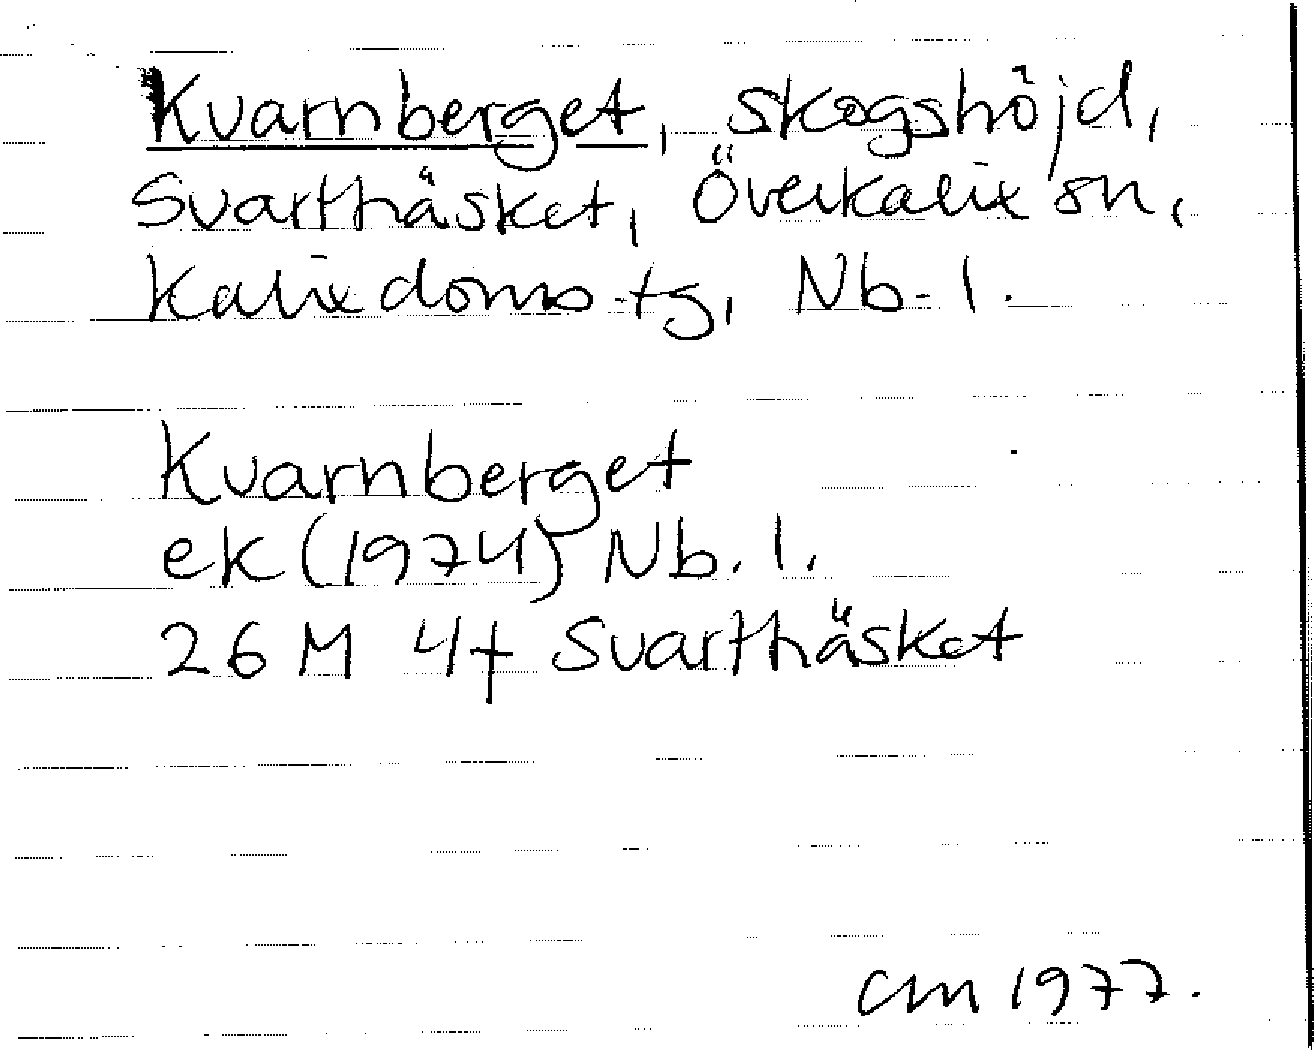 Kvarnberget, skogshöjd,
Svarthäsket, Överkalix sn,
Kalix doms.tg, Nb. l.
Kvarnberget
ek (1974) Nb. l.
26 M 4f Svarthäsket
CM 1977.